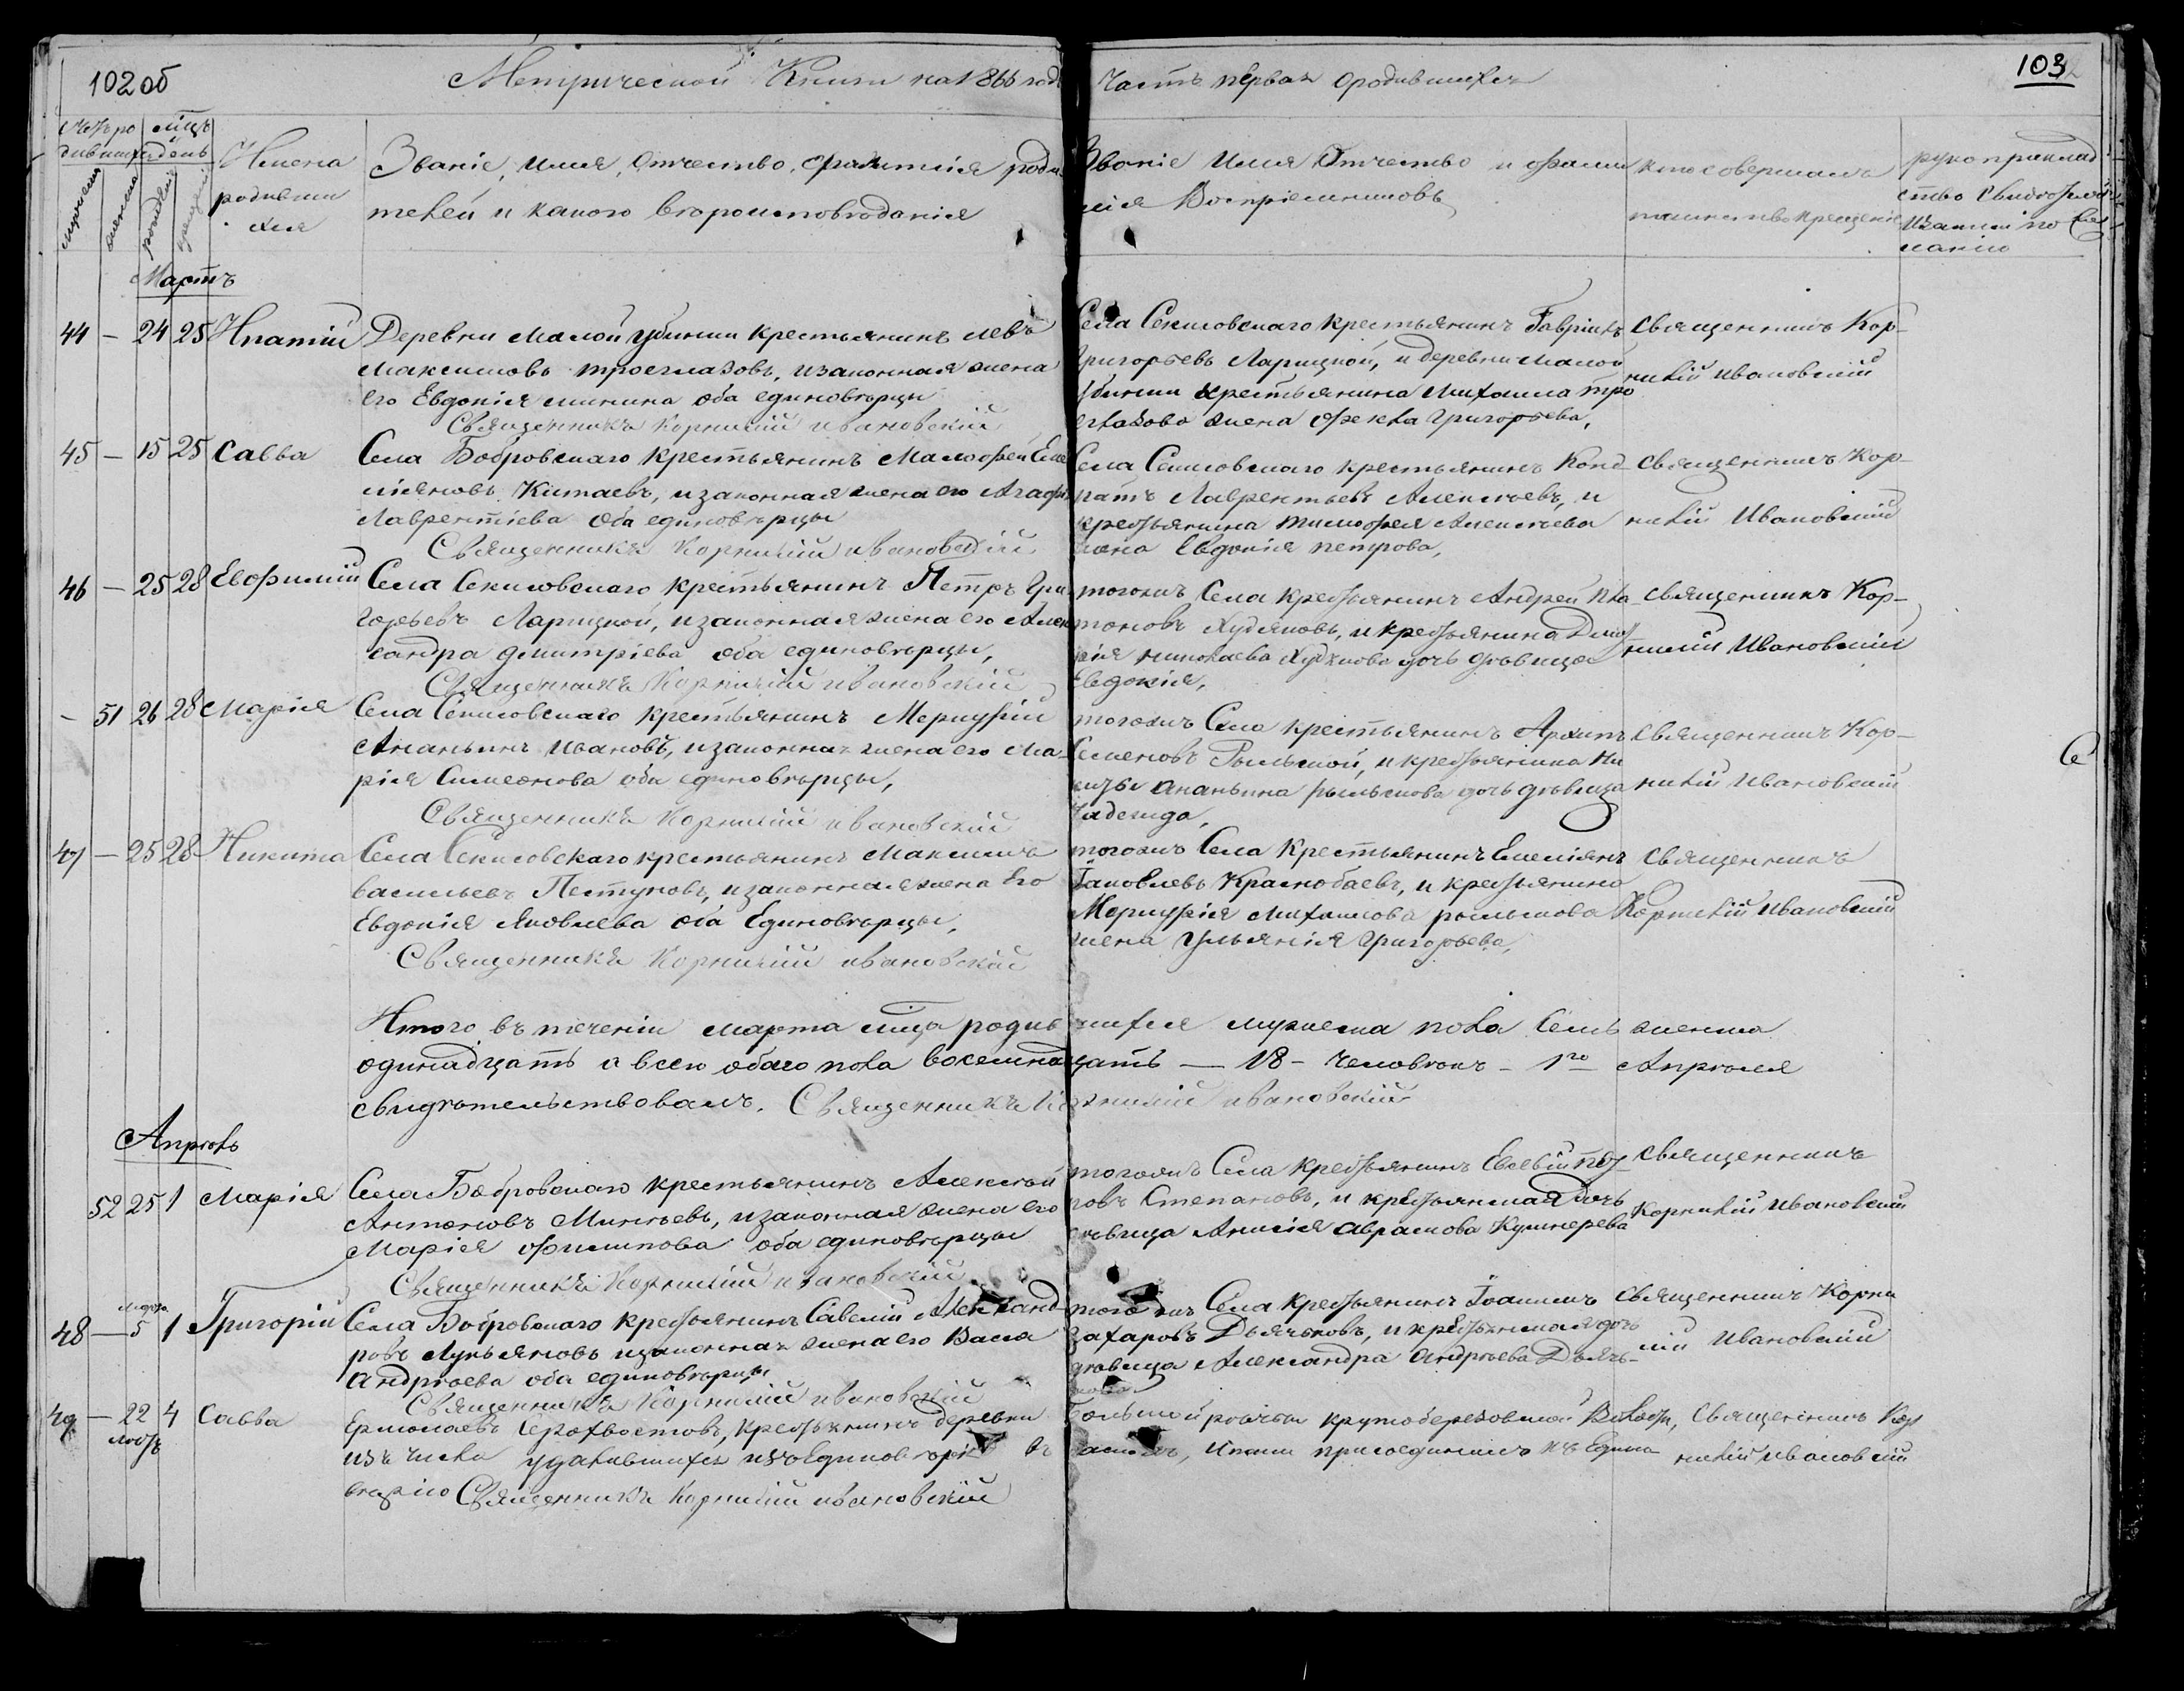 102 об
Метрической Книги на 1866 годъ
Часть первая о родившихся
103
Счетъ родившихся
Мѣсяцъ и день
мужеска
женска
рожденія
крещенія
Имена родившихся
Званіе, имя, отчество, фамилія роди-
телей и какого вѣроисповѣданія
Званіе Имя Отчество и фами
лія Воспріемниковъ
кто совершалъ
таинство крещенія
рукоприклад
ство свидѣтелей
записи по же
ланію
Мартъ
44 — 24 25 Ипатій
Деревни Малой Убинки крестьянинъ Левъ
Максимовъ Троеглазовъ, и законная жена
его Евдокія Минина оба единовѣрцы
Священникъ Корнилій Ивановскій
Села Секисовскаго крестьянинъ Гавріилъ
Григорьевъ Ларицкой, и деревни Малой
Убинки крестьянина Михаила Тро
еглазова жена Фекла Григорьева,
Священникъ Кор-
нилій Ивановскій
45 — 15 25 Савва
Села Бобровскаго крестьянинъ Малофей Еме
ліановъ Китаевъ, и законная жена его Агафія
Лаврентіева оба единовѣрцы
Священникъ Корнилій Ивановскій
Села Секисовскаго крестьянинъ Конд
ратъ Лаврентьевъ Алексѣевъ, и
крестьянина Тимофея Алексѣева
жена Евдокія Петрова,
Священникъ Кор-
нилій Ивановскій
46 — 25 28 Евфимій
Села Секисовскаго крестьянинъ Петръ Гри
горьевъ Ларицкой, и законная жена его Алек
сандра Дмитріева оба единовѣрцы,
Священникъ Корнилій Ивановскій
тогожъ Села крестьянинъ Андрей Пла-
тоновъ Худяковъ, и крестьянина Дмит
рія Николаева Худякова дочь дѣвица
Евдокія,
Священникъ Кор-
нилій Ивановскій
— 51 26 28 Марія
Села Секисовскаго крестьянинъ Меркурій
Ананьинъ Ивановъ, и законная жена его Ма-
рія Симеонова оба единовѣрцы,
Священникъ Корнилій Ивановскій
тогожъ Села крестьянинъ Архипъ
Семеновъ Рыльской, и крестьянина Ни
киты Ананьина Рыльскова дочь дѣвица
Надежда,
Священникъ Кор-
нилій Ивановскій
47 — 25 28 Никита
Села Секисовскаго крестьянинъ Максимъ
Васильевъ Пестуновъ, и законная жена его
Евдокія Яковлева оба Единовѣрцы,
Священникъ Корнилій Ивановскій
тогожъ Села Крестьянинъ Емеліянъ
Іаковлевъ Краснобаевъ, и крестьянина
Меркурія Михаилова Рыльскова
жена Ульянія Григорьева,
Священникъ
Корнилій Ивановскій
Итого въ теченіи марта мѣсяца родив
шихся мужеска пола семь женска
одинадцать а всего обаго пола восемнад
цать — 18 — человѣкъ — 1го Апрѣля
свидѣтельствовалъ. Священникъ Корнилій Ивановскій
Апрѣль
52 25 1 Марія
Села Бобровскаго крестьянинъ Алексѣй
Антоновъ Минѣевъ, и законная жена его
Марія Филипова оба единовѣрцы
Священникъ Корнилій Ивановскій
тогожъ Села крестьянинъ Евсевій Пет
ровъ Степановъ, и крестьянская дочь
дѣвица Анисія Абрамова
Священникъ
Корнилій Ивановскій
48 — марта 5 1 Григорій
Села Бобровскаго крестьянинъ Савелій Александ
ровъ Лукьяновъ и законная жена его Васса
Андрѣева оба единовѣрцы
Священникъ Корнилій Ивановскій
тогожъ Села крестьянинъ Іоанникъ
Захаровъ Дьячковъ, и крестьянская дочь
дѣвица Александра Андрѣева Дьяч-
кова
Священникъ Корни
лій Ивановскій
49 — 22 4 Савва
Ермолаевъ Серохвостовъ, крестьянинъ деревни
Большой рѣчки крутоберезовской Волости,
изъ числа удалившихся изъ единовѣрія въ
расколъ, и нами присоединенъ къ Едино
вѣрію Священникъ Корнилій Ивановскій
Священникъ Кор
нилій Ивановскій